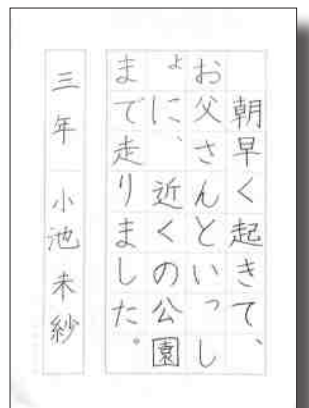 朝早く起きて、
お父さんといっし
ょに、近くの公園
まで走りました。
三年 小池未紗